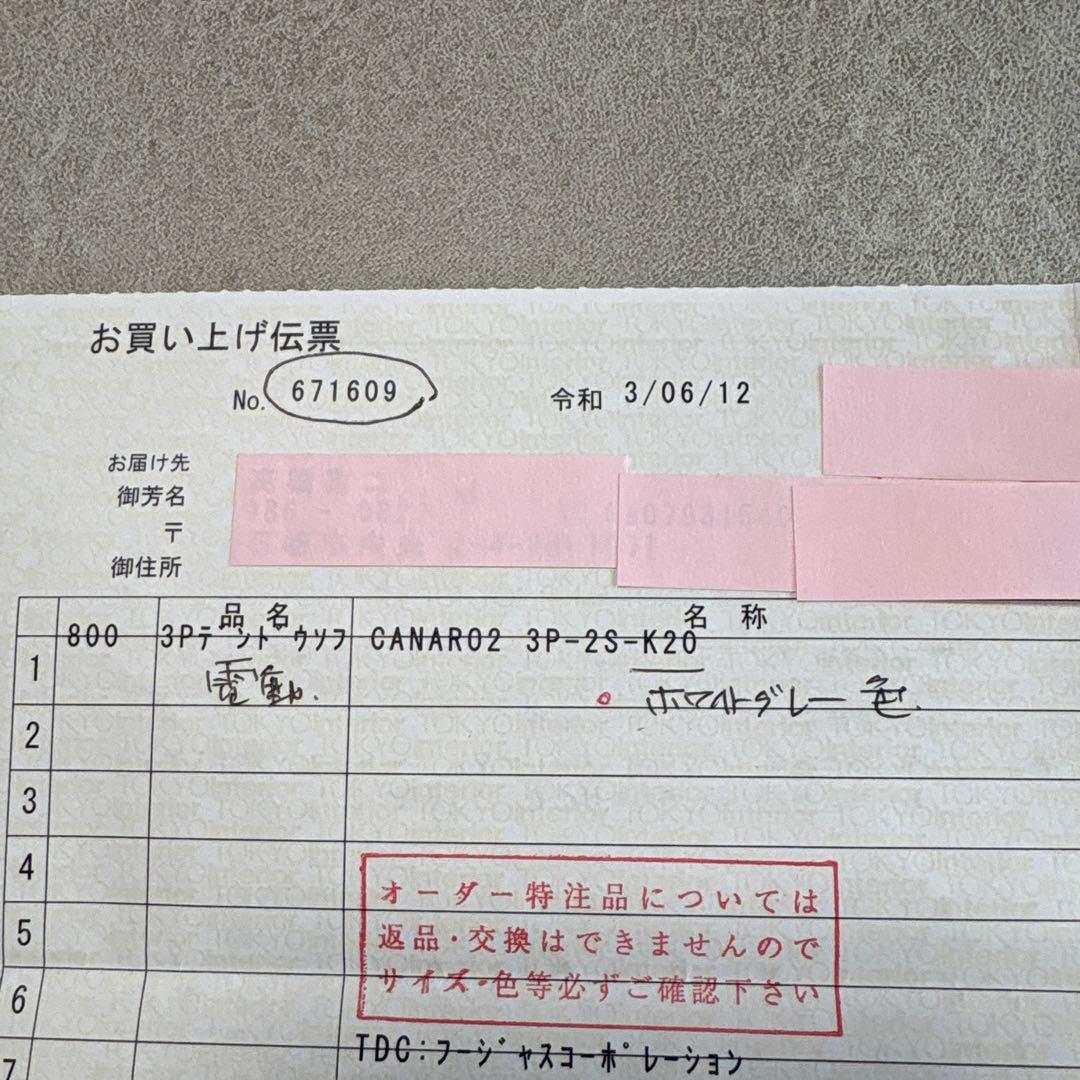 お買い上げ伝票
No. 671609 令和 3/06/12
お届け先
御芳名
〒
御住所
品名 名称
1 800 3Pデンドウソフ CANARO2 3P-2S-K20
電動. ホワイトグレー色.
2
3
4
オーダー特注品については
5
返品・交換はできませんので
サイズ・色等必ずご確認下さい
6
7 TDC:フージャスコーポレーション